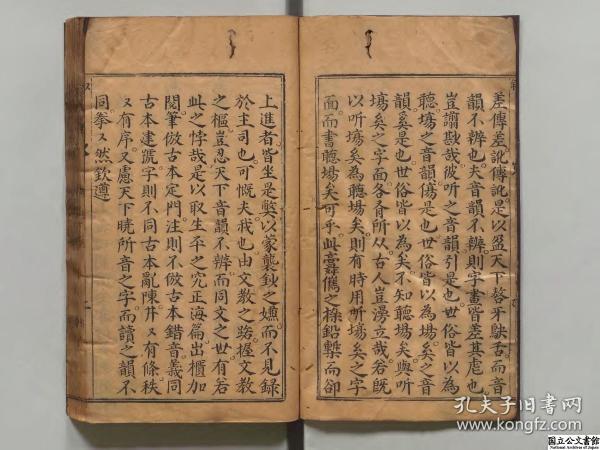 差傳差訛傳訛是以盈天下咎牙缺舌而音
韻不辨也夫音韻不辨則字畫皆差其虐也
豈謭尠哉彼听之音韻引是也世俗皆以為
聴塲之音韻傷是也世俗皆以為塲矣之音
韻奚是也世俗皆以為矣不知聴塲矣與听
塲矣之字面各有所从古人豈漫立哉若旣
以听塲矣為聴塲矣則有時用听塲矣之字
面而書聴塲矣可乎此 之操鉛槧而卻
上進者皆坐是獘以蒙襲 之嫵而不見録
於主司也可慨夫我也由文教之路握文教
之樞豈忍天下音韻不辨而同文之世有若
此之悖哉是以取生平之究正海篇出櫃加
閱筆倣古本定門注則不倣古本錯音義同
古本建號字則不同古本亂陳幷又有條秩
又有序又慮天下曉所音之字而讀之韻不
同拳又然欽遵
孔夫子旧书网
www.kongfz.com
国立公文書館
National Archives of Japan